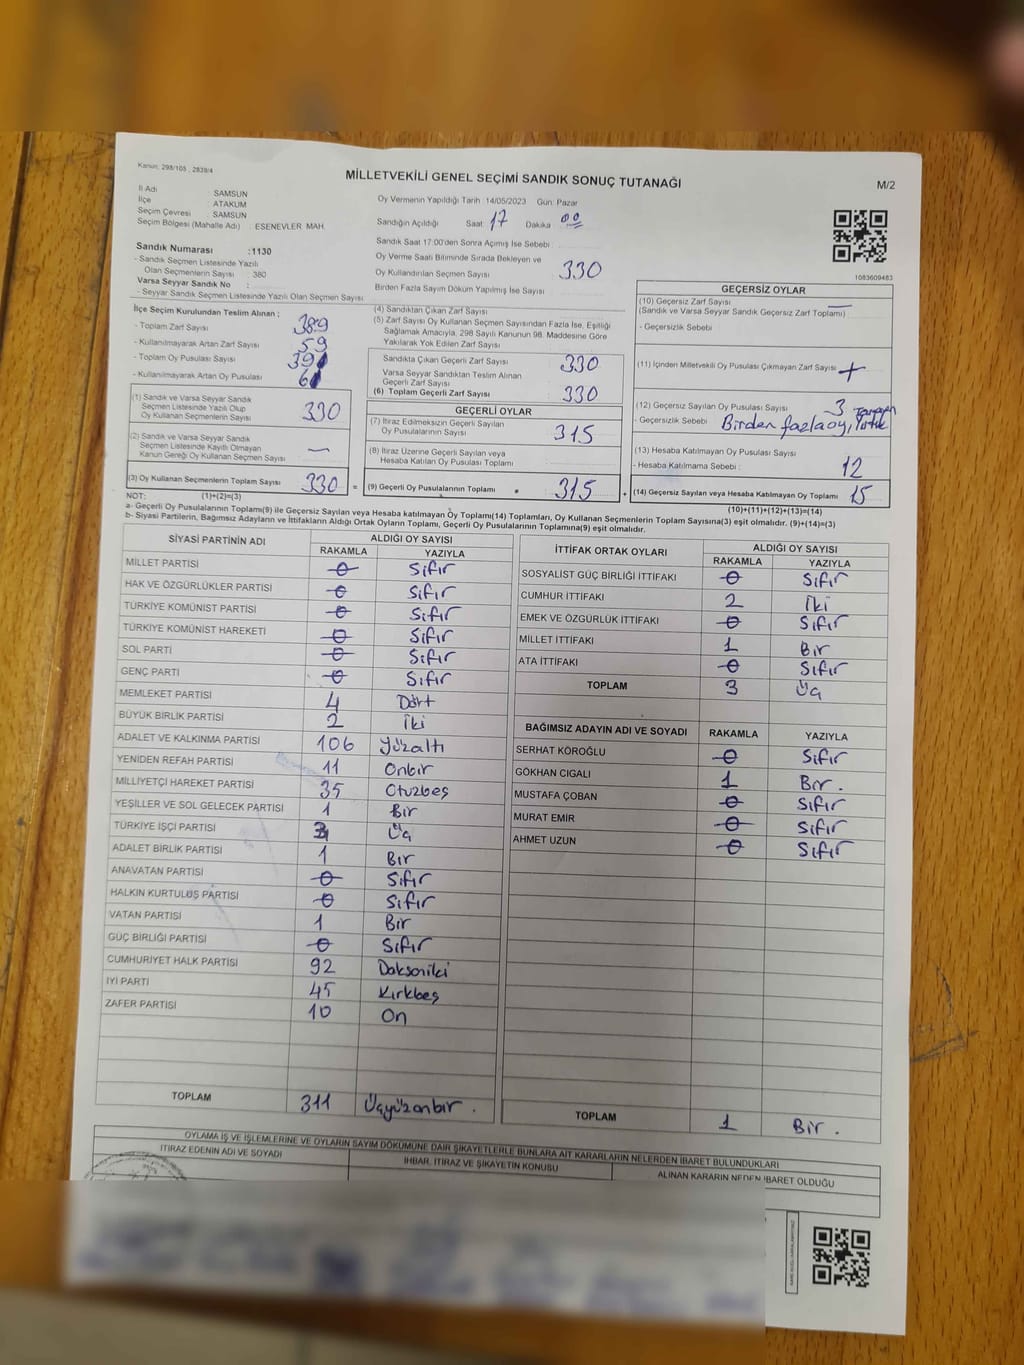 Kanun: 298/105 , 2839/4
MİLLETVEKİLİ GENEL SEÇİMİ SANDIK SONUÇ TUTANAĞI
M/2
İl Adı SAMSUN
İlçe ATAKUM
Seçim Çevresi SAMSUN
Seçim Bölgesi (Mahalle Adı) : ESENEVLER MAH.
Oy Vermenin Yapıldığı Tarih 14/05/2023 Gün: Pazar
Sandığın Açıldığı Saat: 17 Dakika 00
Sandık Saat 17:00'den Sonra Açımış İse Sebebi :
Oy Verme Saati Bitiminde Sırada Bekleyen ve
Oy Kullandırılan Seçmen Sayısı 330
Birden Fazla Sayım Döküm Yapılmış İse Sayısı :
Sandık Numarası :1130
- Sandık Seçmen Listesinde Yazılı
Olan Seçmenlerin Sayısı : 380
Varsa Seyyar Sandık No :
- Seyyar Sandık Seçmen Listesinde Yazılı Olan Seçmen Sayısı
1083609483
İlçe Seçim Kurulundan Teslim Alınan ;
- Toplam Zarf Sayısı 389
- Kullanılmayarak Artan Zarf Sayısı 59
- Toplam Oy Pusulası Sayısı
- Kullanılmayarak Artan Oy Pusulası
(1) Sandık ve Varsa Seyyar Sandık
Seçmen Listesinde Yazılı Olup
Oy Kullanan Seçmenlerin Sayısı 330
(2) Sandık ve Varsa Seyyar Sandık
Seçmen Listesinde Kayıtlı Olmayan
Kanun Gereği Oy Kullanan Seçmen Sayısı —
(3) Oy Kullanan Seçmenlerin Toplam Sayısı 330 =
(4) Sandıktan Çıkan Zarf Sayısı
(5) Zarf Sayısı Oy Kullanan Seçmen Sayısından Fazla İse, Eşitliği
Sağlamak Amacıyla, 298 Sayılı Kanunun 98. Maddesine Göre
Yakılarak Yok Edilen Zarf Sayısı
Sandıkta Çıkan Geçerli Zarf Sayısı 330
Varsa Seyyar Sandıktan Teslim Alınan
Geçerli Zarf Sayısı
(6) Toplam Geçerli Zarf Sayısı 330
GEÇERLİ OYLAR
(7) İtiraz Edilmeksizin Geçerli Sayılan
Oy Pusulalarının Sayısı 315
(8) İtiraz Üzerine Geçerli Sayılan veya
Hesaba Katılan Oy Pusulası Toplamı
(9) Geçerli Oy Pusulalarının Toplamı 315 +
GEÇERSİZ OYLAR
(10) Geçersiz Zarf Sayısı —
(Sandık ve Varsa Seyyar Sandık Geçersiz Zarf Toplamı)
- Geçersizlik Sebebi
(11) İçinden Milletvekili Oy Pusulası Çıkmayan Zarf Sayısı
(12) Geçersiz Sayılan Oy Pusulası Sayısı 3
- Geçersizlik Sebebi Birden fazla oy,
(13) Hesaba Katılmayan Oy Pusulası Sayısı
- Hesaba Katılmama Sebebi : 12
(14) Geçersiz Sayılan veya Hesaba Katılmayan Oy Toplamı 15
NOT: (1)+(2)=(3)
(10)+(11)+(12)+(13)=(14)
a- Geçerli Oy Pusulalarının Toplamı(9) ile Geçersiz Sayılan veya Hesaba Katılmayan Oy Toplam(14) Toplamları, Oy Kullanan Seçmenlerin Toplam Sayısına(3) eşit olmalıdır. (9)+(14)=(3)
b- Siyasi Partilerin, Bağımsız Adayların ve İttifakların Aldığı Ortak Oyların Toplamı, Geçerli Oy Pusulalarının Toplamına(9) eşit olmalıdır.
SİYASİ PARTİNİN ADI ALDIĞI OY SAYISI
RAKAMLA YAZIYLA
MİLLET PARTİSİ 0 Sıfır
HAK VE ÖZGÜRLÜKLER PARTİSİ 0 Sıfır
TÜRKİYE KOMÜNİST PARTİSİ 0 Sıfır
TÜRKİYE KOMÜNİST HAREKETİ 0 Sıfır
SOL PARTİ 0 Sıfır
GENÇ PARTİ 0 Sıfır
MEMLEKET PARTİSİ 4 Dört
BÜYÜK BİRLİK PARTİSİ 2 İki
ADALET VE KALKINMA PARTİSİ 106 Yüzaltı
YENİDEN REFAH PARTİSİ 11 Onbir
MİLLİYETÇİ HAREKET PARTİSİ 35 Otuzbeş
YEŞİLLER VE SOL GELECEK PARTİSİ 1 Bir
TÜRKİYE İŞÇİ PARTİSİ 3 Üç
ADALET BİRLİK PARTİSİ 1 Bir
ANAVATAN PARTİSİ 0 Sıfır
HALKIN KURTULUŞ PARTİSİ 0 Sıfır
VATAN PARTİSİ 1 Bir
GÜÇ BİRLİĞİ PARTİSİ 0 Sıfır
CUMHURİYET HALK PARTİSİ 92 Doksaniki
İYİ PARTİ 45 Kırkbeş
ZAFER PARTİSİ 10 On
TOPLAM 311 Üçyüzonbir .
İTTİFAK ORTAK OYLARI ALDIĞI OY SAYISI
RAKAMLA YAZIYLA
SOSYALİST GÜÇ BİRLİĞİ İTTİFAKI 0 Sıfır
CUMHUR İTTİFAKI 2 İki
EMEK VE ÖZGÜRLÜK İTTİFAKI 0 Sıfır
MİLLET İTTİFAKI 1 Bir
ATA İTTİFAKI 0 Sıfır
TOPLAM 3 Üç
BAĞIMSIZ ADAYIN ADI VE SOYADI RAKAMLA YAZIYLA
SERHAT KÖROĞLU 0 Sıfır
GÖKHAN CIGALI 1 Bir .
MUSTAFA ÇOBAN 0 Sıfır
MURAT EMİR 0 Sıfır
AHMET UZUN 0 Sıfır
TOPLAM 1 Bir .
OYLAMA İŞ VE İŞLEMLERİNE VE OYLARIN SAYIM DÖKÜMÜNE DAİR ŞİKAYETLERLE BUNLARA AİT KARARLARIN NELERDEN İBARET BULUNDUKLARI
İTİRAZ EDENİN ADI VE SOYADI İHBAR, İTİRAZ VE ŞİKAYETİN KONUSU ALINAN KARARIN NEDEN İBARET OLDUĞU